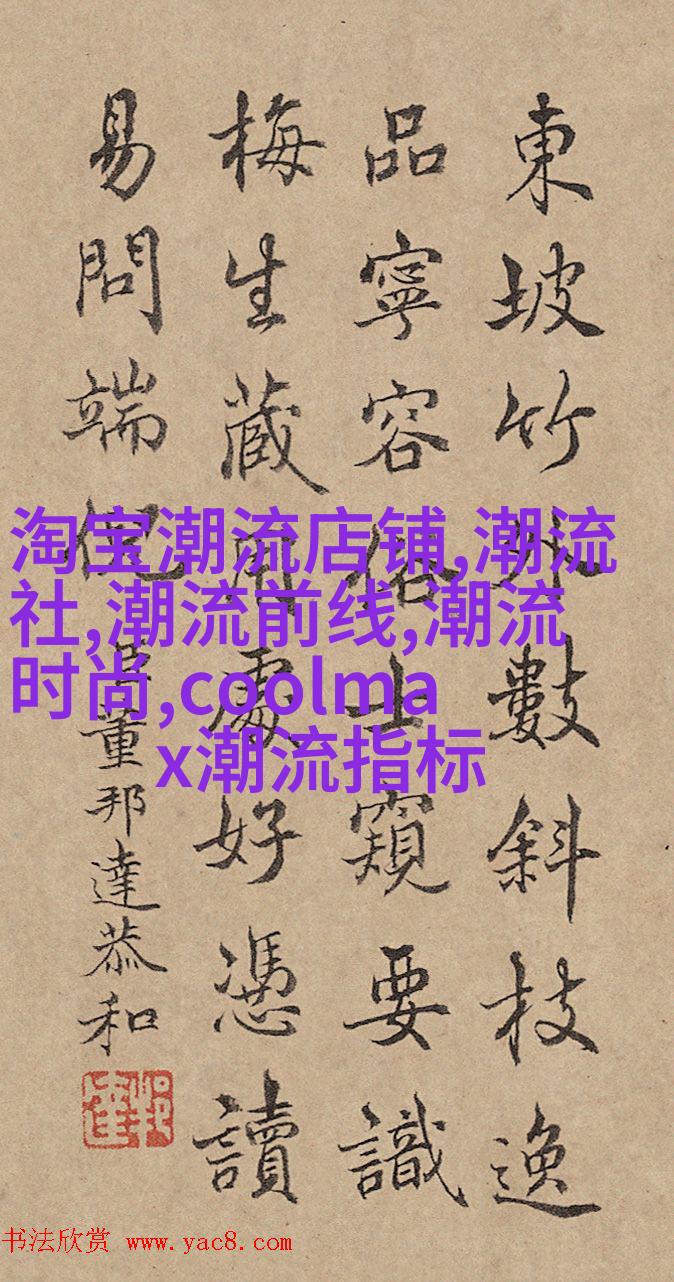 東坡竹外數斜枝逸
品寧容俗士窺要識
梅生藏用處好憑讀
易問端倪
臣董邦達恭和
淘宝潮流店铺,潮流
社,潮流前线,潮流
时尚,coolma
x潮流指标
书法欣赏 www.yac8.com